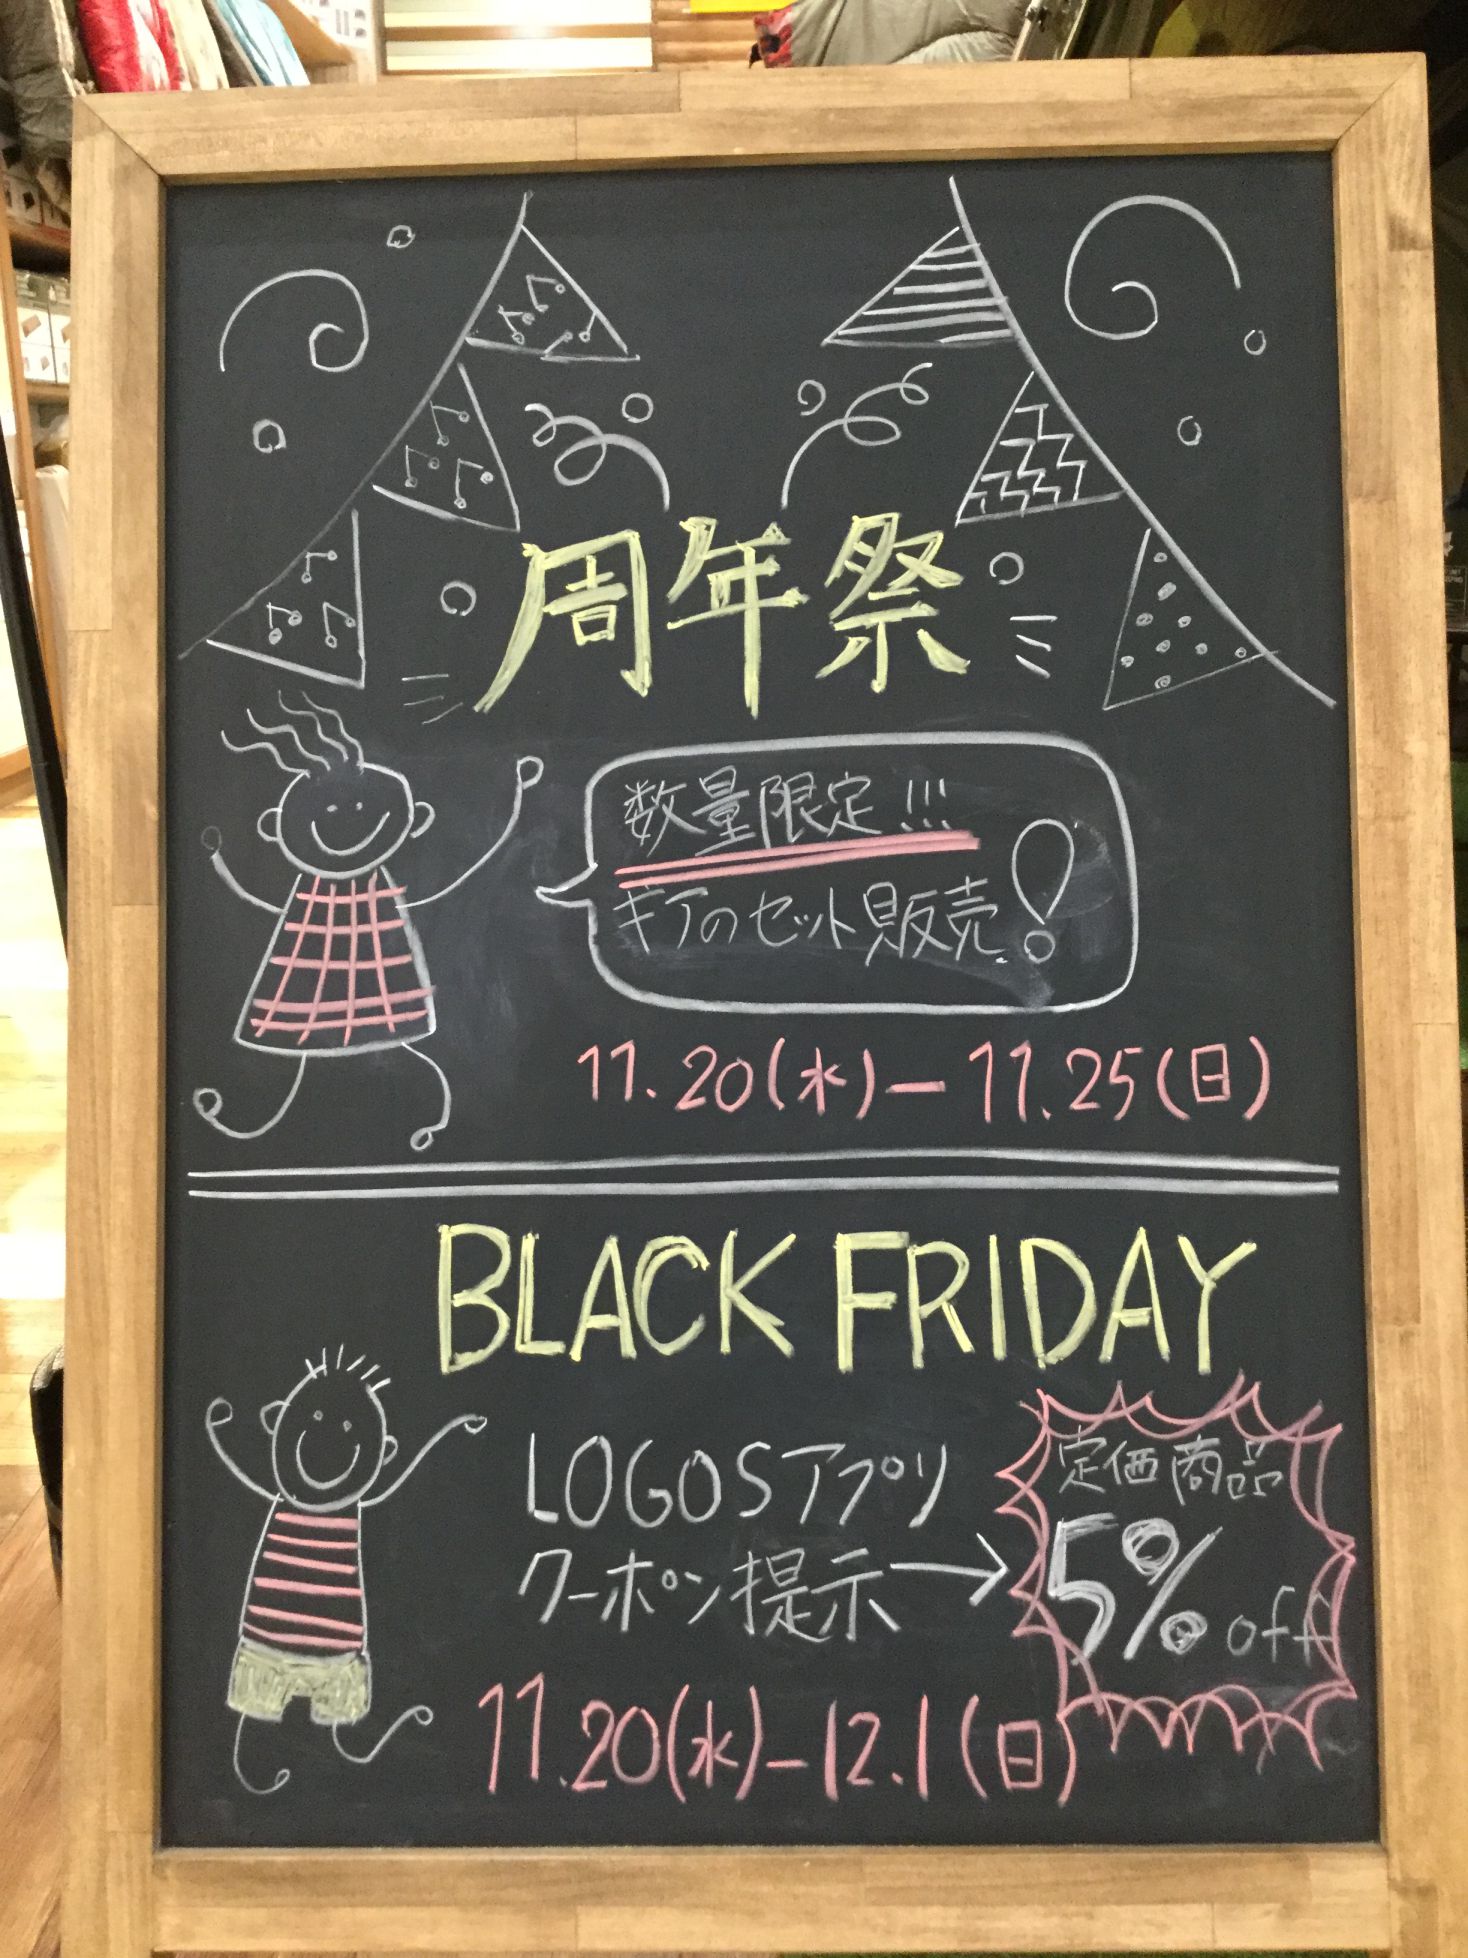 周年祭
数量限定!!!
ギアのセット販売!
11.20(水)-11.25(日)
BLACK FRIDAY
LOGOSアプリ
クーポン提示→
定価商品
5% off
11.20(水)-12.1(日)